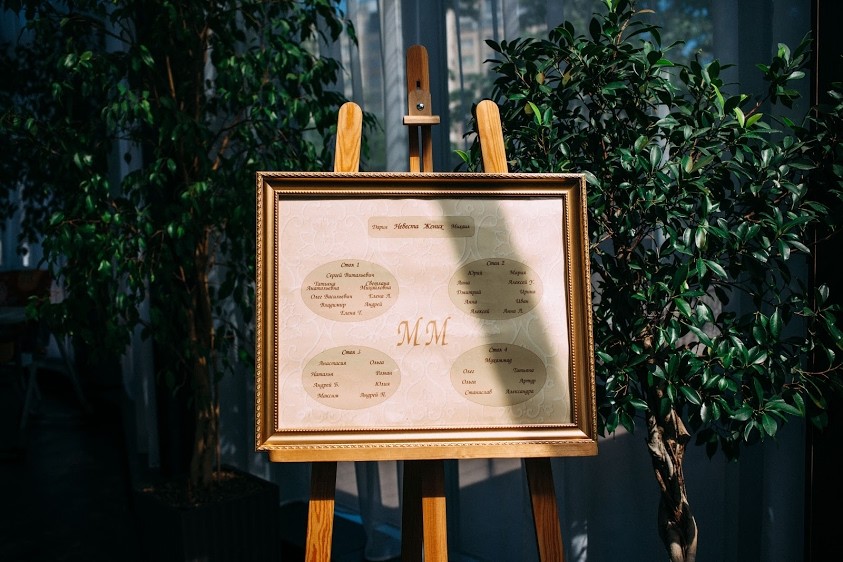 Дарья Невеста Жених Михаил
Стол 1
Сергей Витальевич
Татьяна Светлана
Анатольевна Михайловна
Олег Васильевич Елена А.
Владимир Андрей
Елена Т.
Стол 2
Юрий Мария
Анна Алексей Т.
Дмитрий Ирина
Анна Иван
Алексей Анна Л.
М М
Стол 3
Анастасия Ольга
Наталья Роман
Андрей Б. Юлия
Максим Андрей П.
Стол 4
Олег Татьяна
Ольга Артур
Станислав Александра